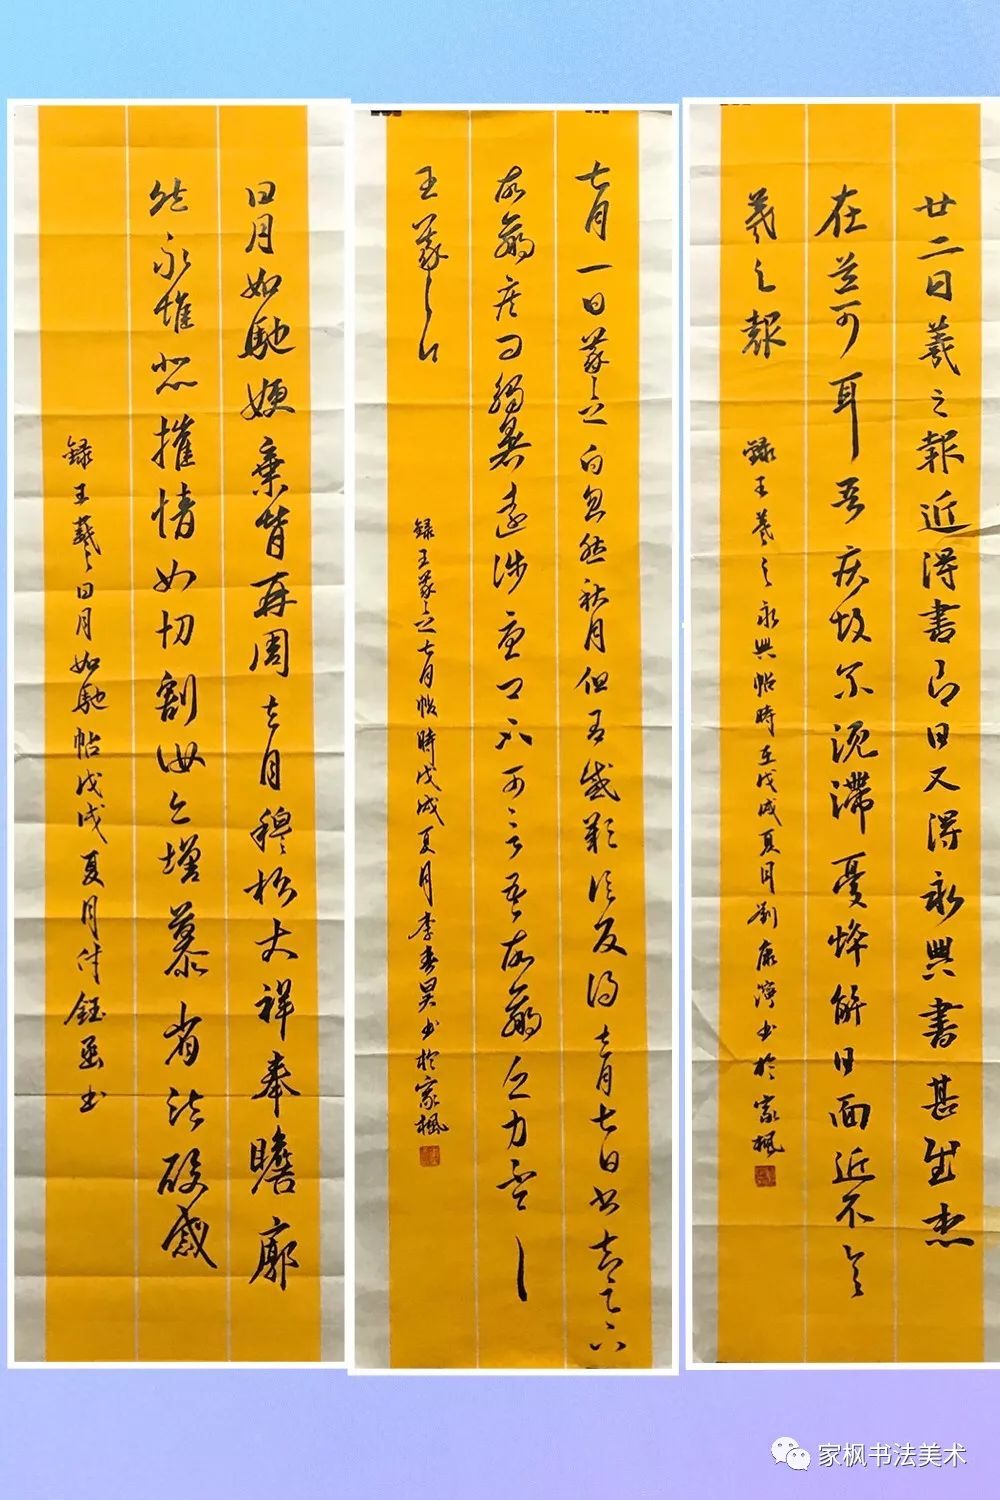 廿二日羲之報近得書即日又得永興書甚慰想
在道可耳吾疾故尔沉滯憂悴解日面近不具
羲之報
録王羲之永興帖時在戊戌夏月劉康書於家楓
七月一日羲之白忽然秋月但有感歎信反得去月七日書知足下
故羸疾問觸暑遠涉憂卿不可言吾故羸乏力不一一
王羲之白
録王羲之七月帖時戊戌夏月李春昊書於家楓
日月如馳嫂棄背再周去月穆松大祥奉瞻廓
然永惟悲摧情如切割汝亦增慕省法疏感
録王羲之日月如馳帖戊戌夏月付鈺函書
家枫书法美术